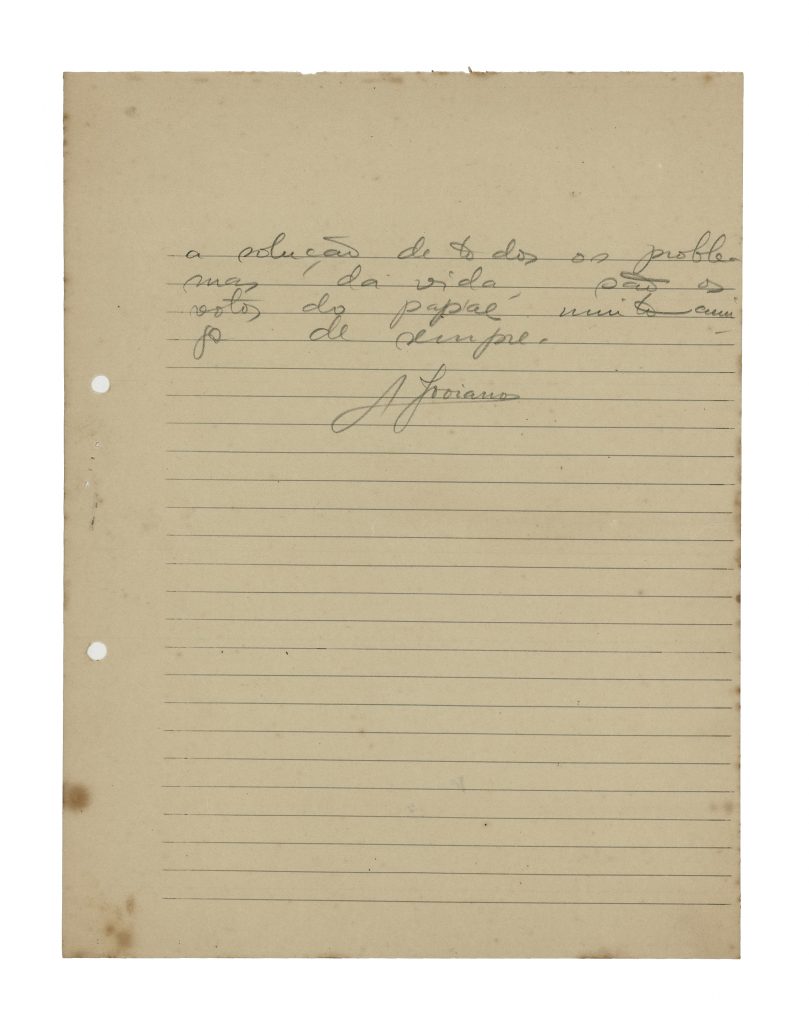 a solução de todos os proble-
mas da vida, são os
votos do papae muito ami-
go de sempre.
A Troiano